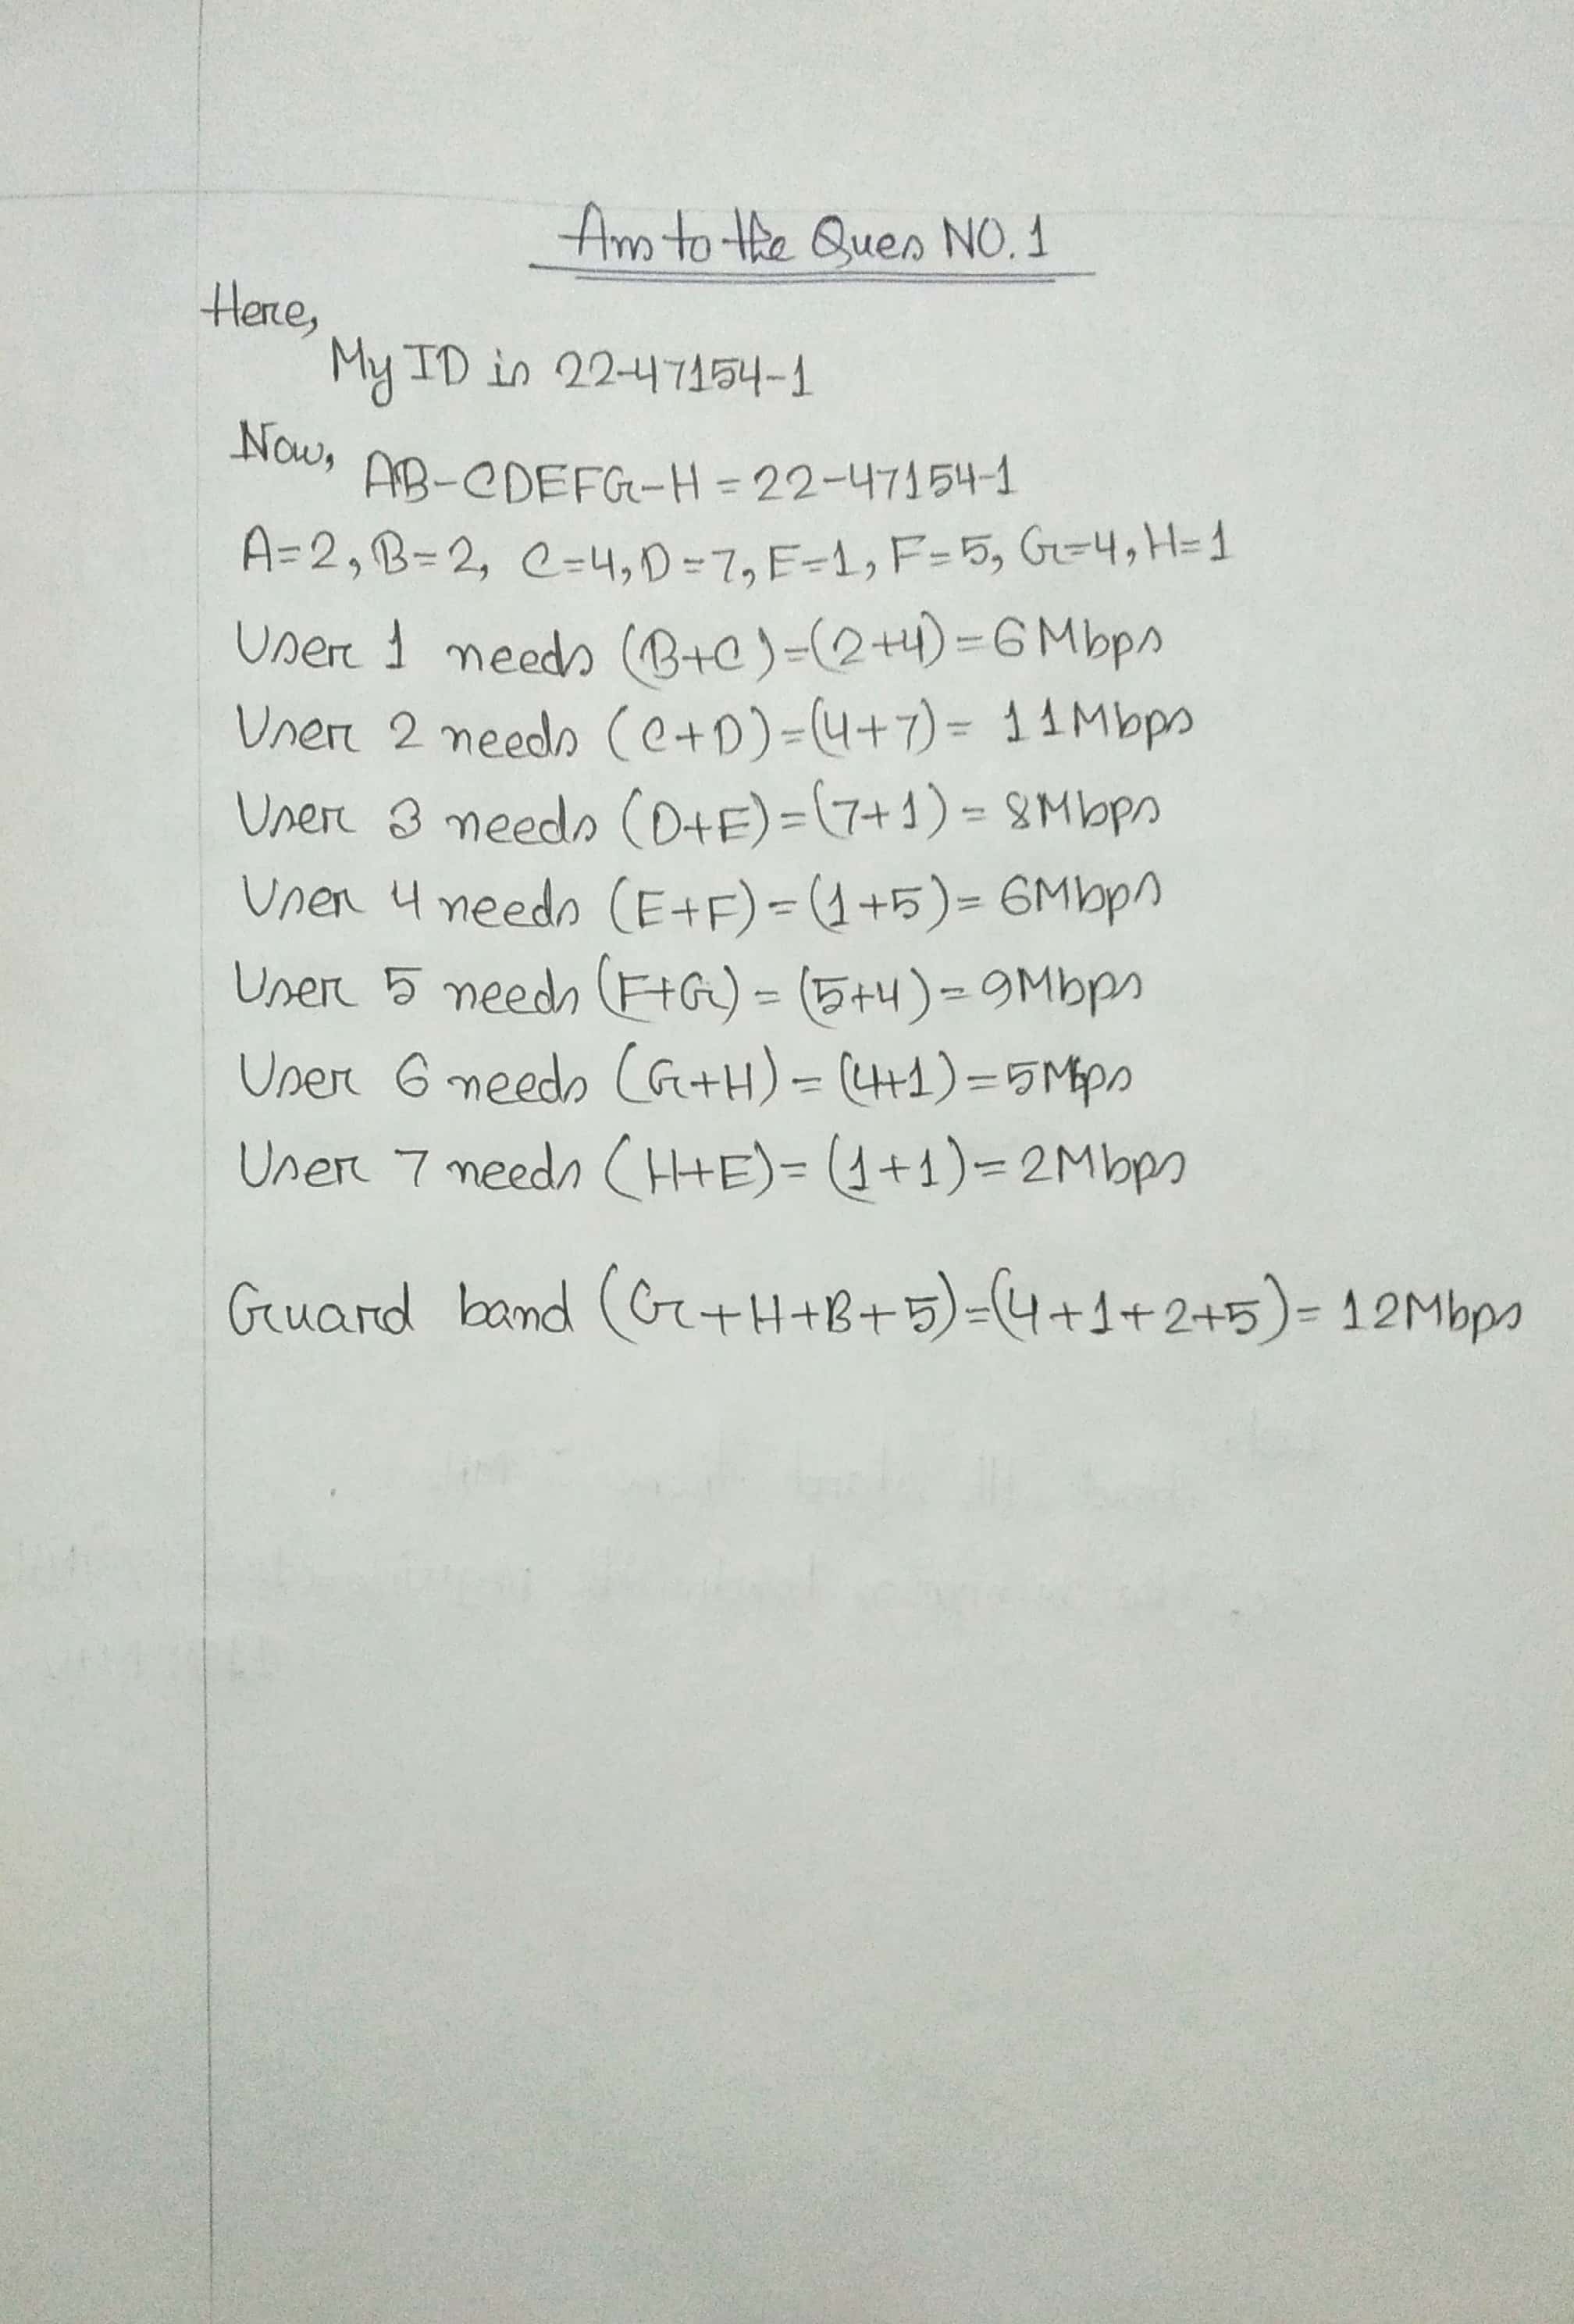 Ans to the Ques NO. 1
Here,
My ID is 22-47154-1
Now,
AB-CDEFG-H = 22-47154-1
A=2, B=2, C=4, D=7, E=1, F=5, G=4, H=1
User 1 needs (B+C)=(2+4)=6Mbps
User 2 needs (C+D)=(4+7)= 11Mbps
User 3 needs (D+E)=(7+1)= 8Mbps
User 4 needs (E+F)=(1+5)= 6Mbps
User 5 needs (F+G) = (5+4)=9Mbps
User 6 needs (G+H) = (4+1)=5Mbps
User 7 needs (H+E)= (1+1)=2Mbps
Guard band (G+H+B+5)=(4+1+2+5)= 12Mbps